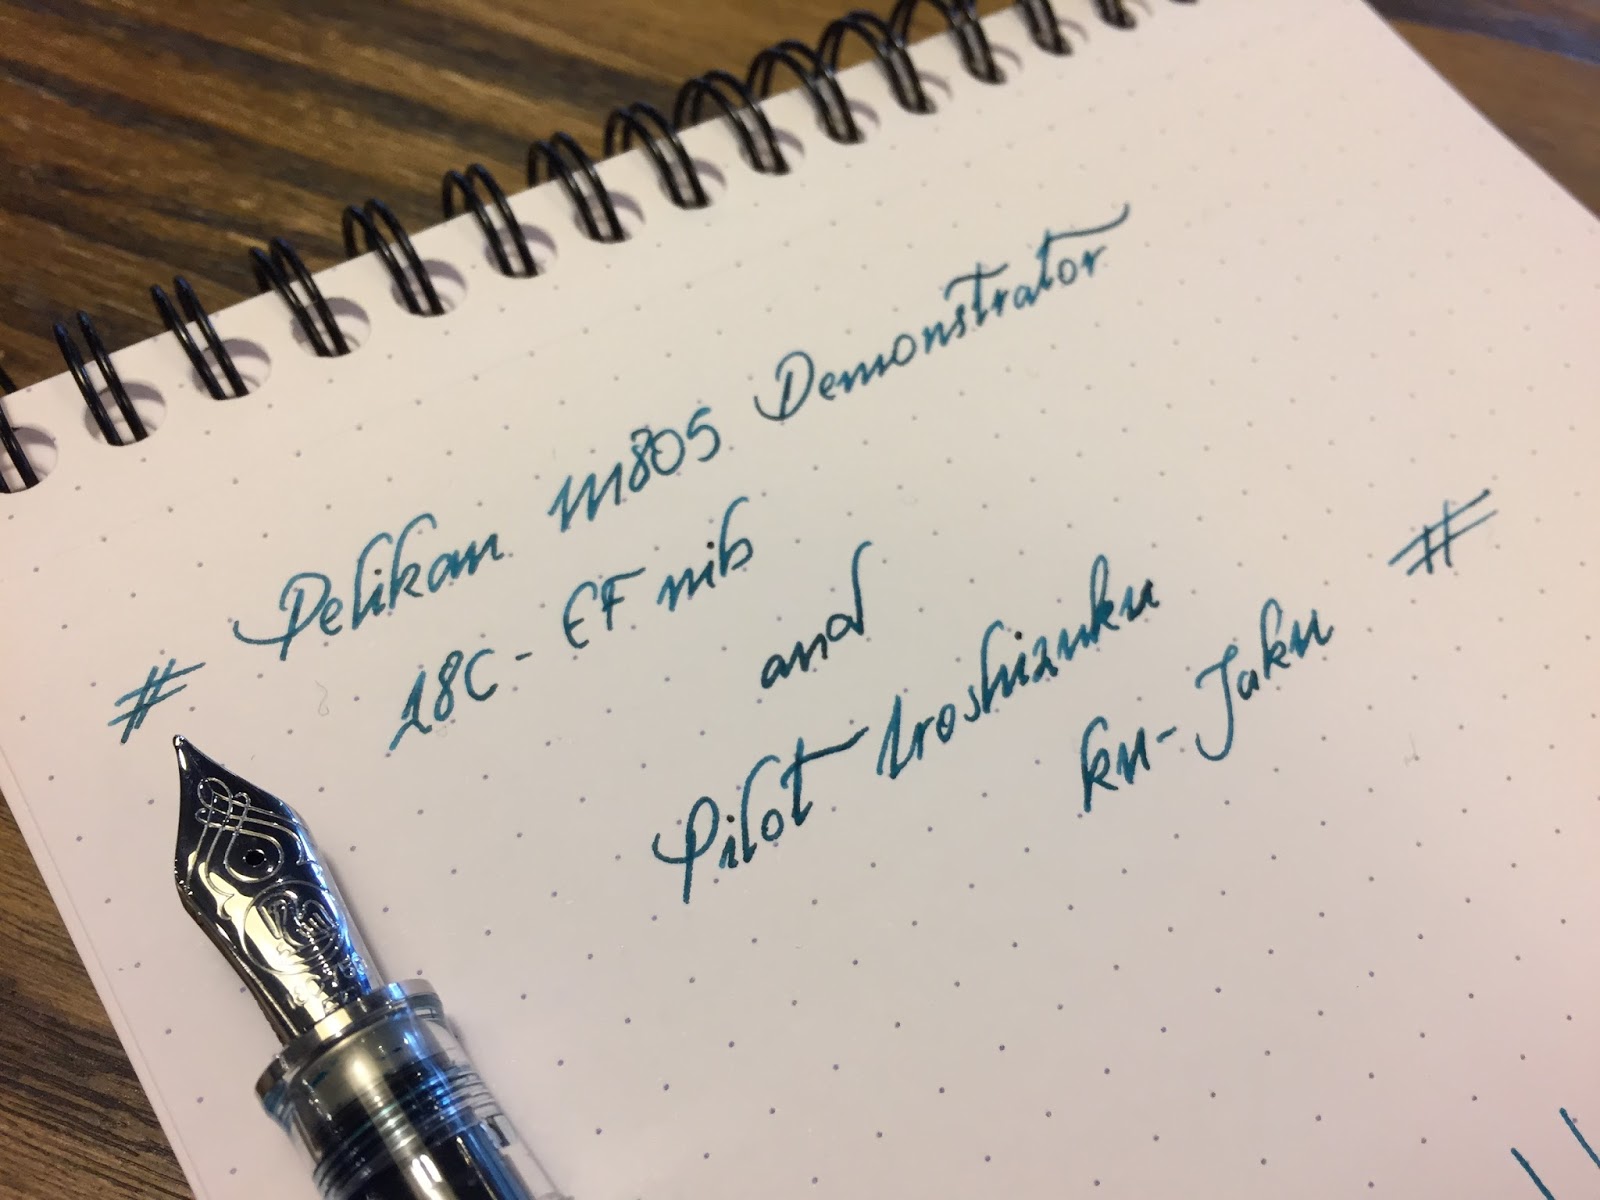 # Pelikan M805 Demonstrator
18C - EF nib
and
Pilot Iroshizuku
ku-Jaku #